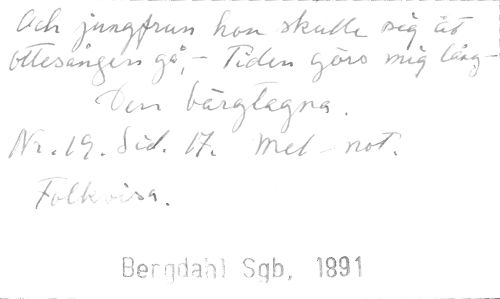 Och jungfrun hon skulle sig åt
ottesången gå, - Tiden görs mig lång -
Den bärgtagna.
Nr. 19. Sid. 17. Mel - not.
Folkvisa.
Bergdahl Sgb, 1891